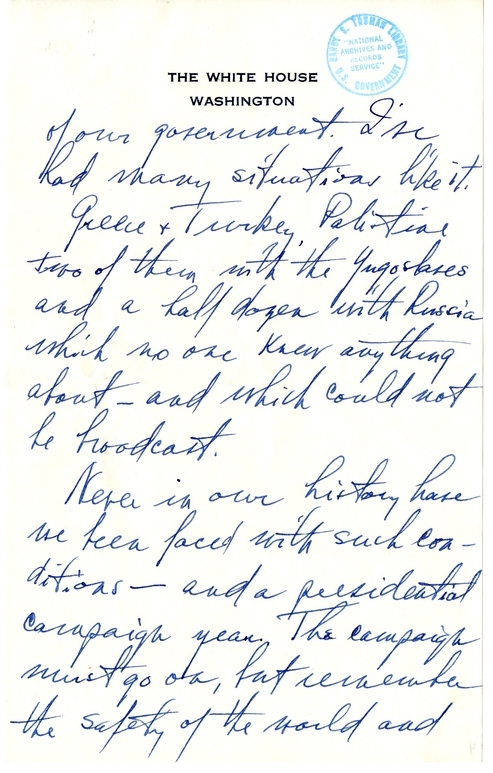 HARRY S. TRUMAN LIBRARY
"NATIONAL
ARCHIVES AND
RECORDS
SERVICE"
U.S. GOVERNMENT
THE WHITE HOUSE
WASHINGTON
of our government. I've
had many situations like it.
Greece & Turkey, Palistine
two of them with the Yugoslaves
and a half dozen with Russia
which no one knew anything
about — and which could not
be broadcast.
Never in our history have
we been faced with such con-
ditions — and a presidential
campaign year. The campaign
must go on, but remember
the safety of the world and